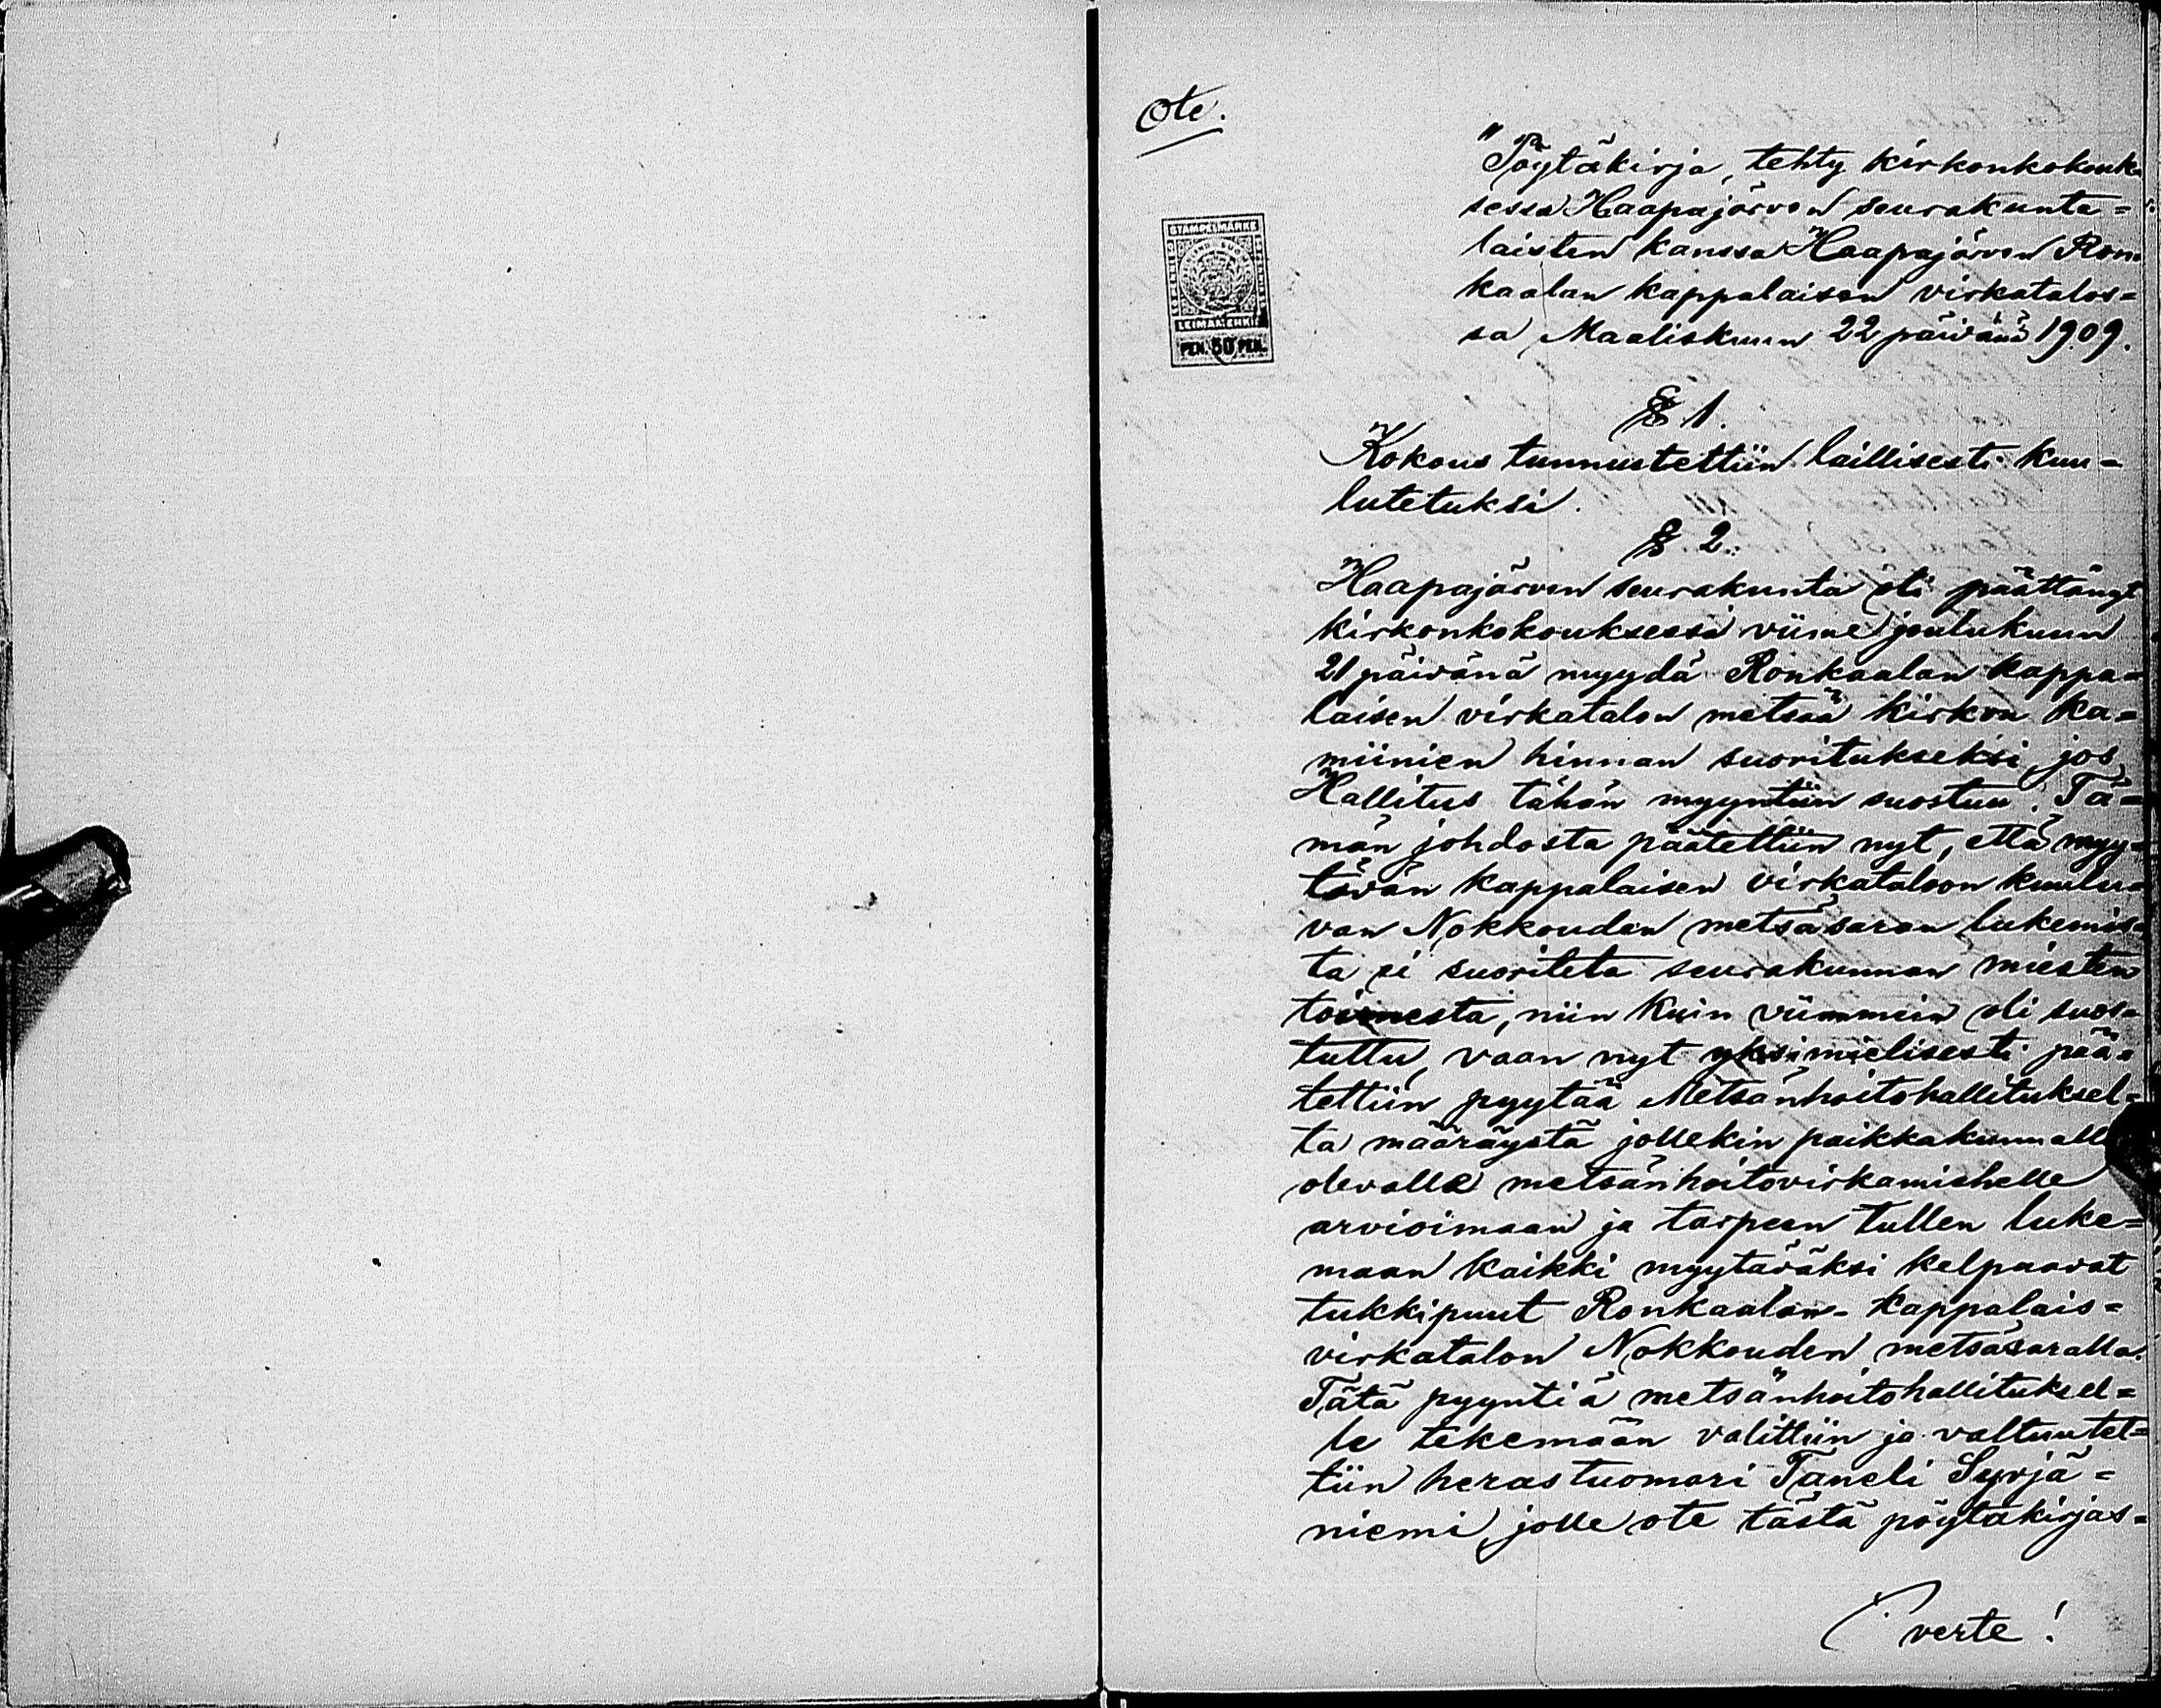 Ote.
"Pöytäkirja, tehty kirkonkokouk-
sessa Haapajärven seurakunta=
laisten kanssa Haapajärven Ron-
kaalan kappalaisen virkatalos=
sa Maaliskuun 22 päivänä 1909.
STAMPELMÄRKE
LEIMAMERKKI
PEN. 50 PEN.
§ 1.
Kokous tunnustettiin laillisesti kuu=
lutetuksi.
§ 2.
Haapajärven seurakunta oli päättänyt
kirkonkokouksessa viime joulukuun
21 päivänä myydä Ronkaalan kappa=
laisen virkatalon metsää kirkon ka=
miinien hinnan suoritukseksi, jos
Hallitus tähän myyntiin suostuu. Tä=
män johdosta päätettiin nyt, että myy=
tävän kappalaisen virkataloon kuulu=
van Nokkouden metsäsaran lukemis=
ta ei suoriteta seurakunnan miesten
toimesta, niin kuin viimmein oli suos=
tuttu, vaan nyt yksimielisesti pää=
tettiin pyytää Metsänhoitohallituksel=
ta määräystä jollekin paikkakunnalla
olevalle metsänhoitovirkamiehelle
arvioimaan ja tarpeen tullen luke=
maan kaikki myytäväksi kelpaavat
tukkipuut Ronkaalan- kappalais=
virkatalon Nokkouden metsäsaralla.
Tätä pyyntiä metsänhoitohallituksel=
le tekemään valittiin ja valtuutet=
tiin herastuomari Taneli Syrjä=
niemi, jolle ote tästä pöytäkirjas=
verte!